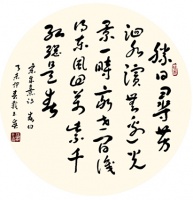 勝日尋芳
泗水濱無邊光
景一時新等閒識
得東風面萬紫千
紅總是春
宋朱熹詩 春日